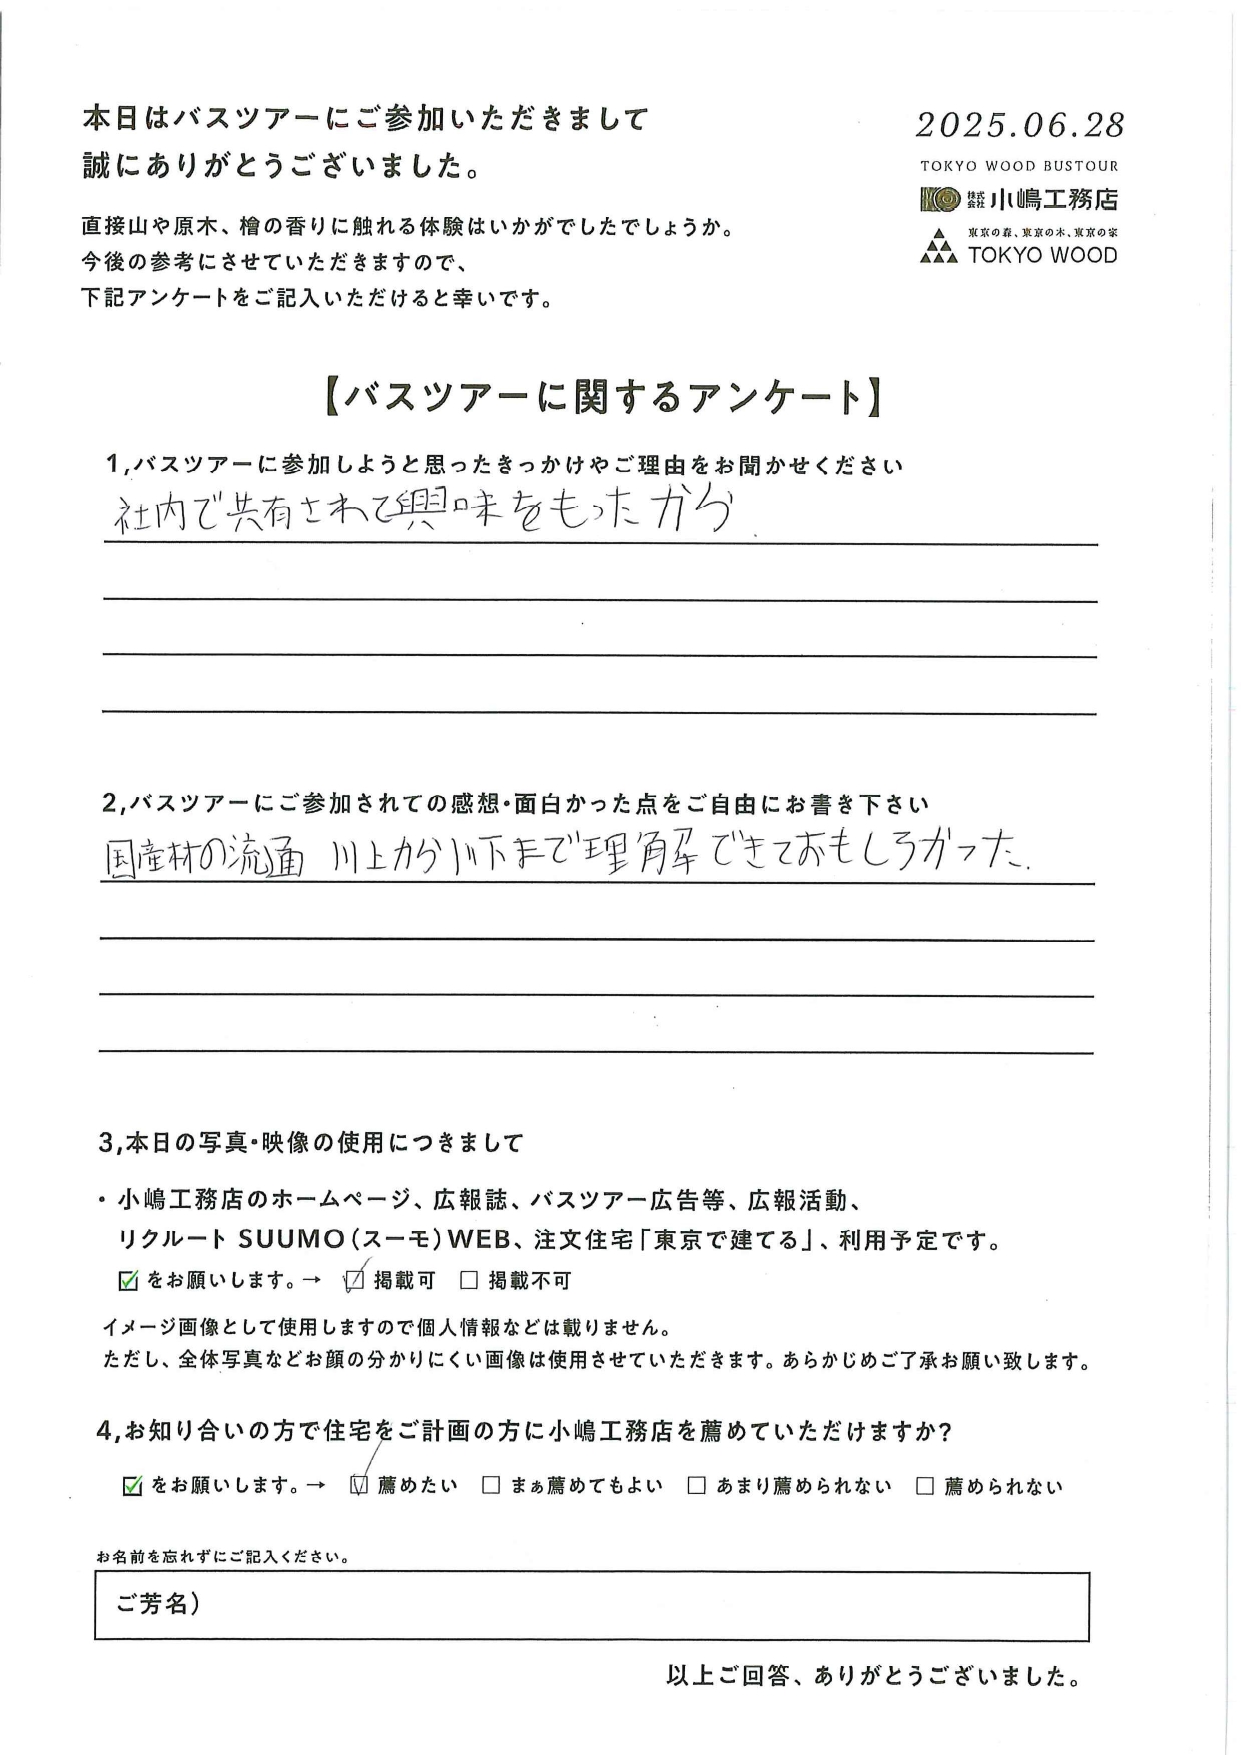 本日はバスツアーにご参加いただきまして
誠にありがとうございました。
2025.06.28
TOKYO WOOD BUSTOUR
株式会社 小嶋工務店
東京の森、東京の木、東京の家
TOKYO WOOD
直接山や原木、檜の香りに触れる体験はいかがでしたでしょうか。
今後の参考にさせていただきますので、
下記アンケートをご記入いただけると幸いです。
【バスツアーに関するアンケート】
1,バスツアーに参加しようと思ったきっかけやご理由をお聞かせください
社内で共有されて興味をもったから
2,バスツアーにご参加されての感想・面白かった点をご自由にお書き下さい
国産材の流通 川上から川下まで理解できておもしろかった.
3,本日の写真・映像の使用につきまして
・小嶋工務店のホームページ、広報誌、バスツアー広告等、広報活動、
リクルート SUUMO(スーモ)WEB、注文住宅「東京で建てる」、利用予定です。
☑をお願いします。→ ☑掲載可 □掲載不可
イメージ画像として使用しますので個人情報などは載りません。
ただし、全体写真などお顔の分かりにくい画像は使用させていただきます。あらかじめご了承お願い致します。
4,お知り合いの方で住宅をご計画の方に小嶋工務店を薦めていただけますか?
☑をお願いします。→ ☑薦めたい □まぁ薦めてもよい □あまり薦められない □薦められない
お名前を忘れずにご記入ください。
ご芳名)
以上ご回答、ありがとうございました。